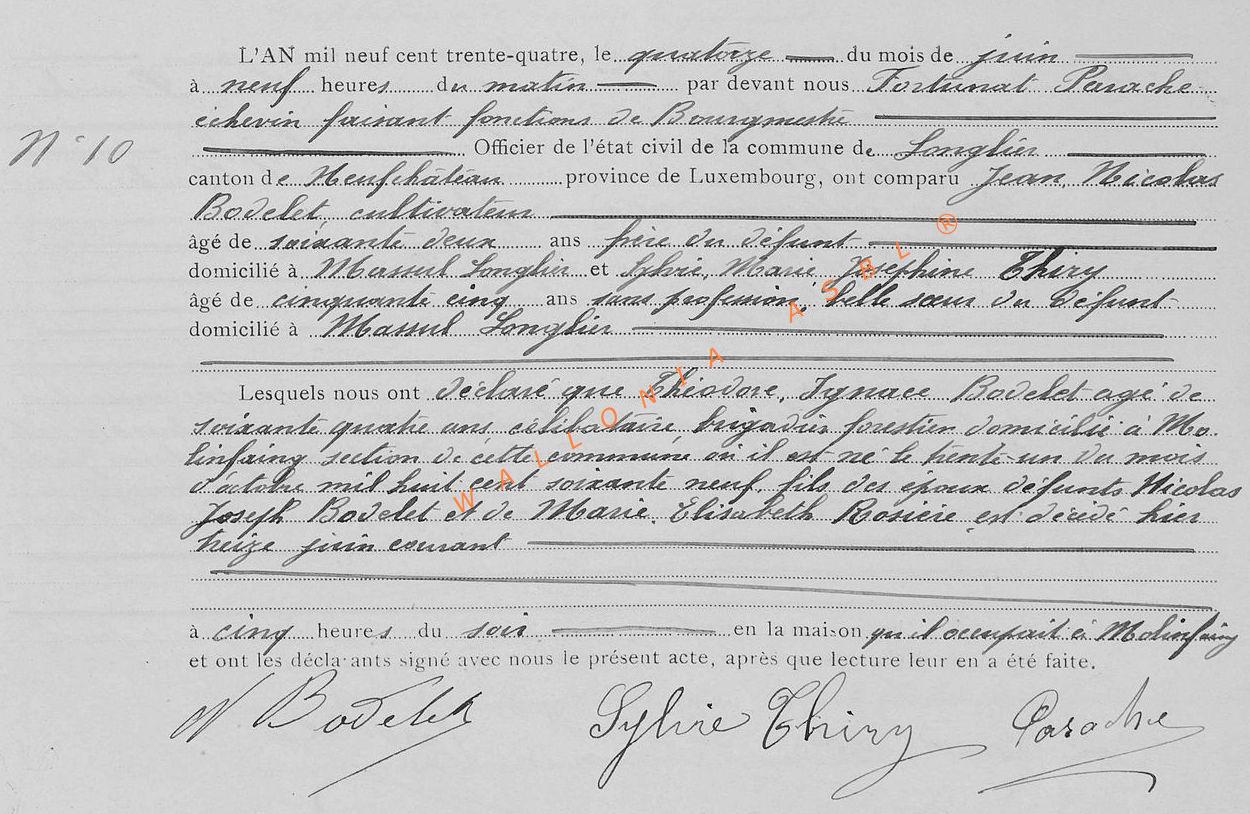 L'AN mil neuf cent trente-quatre, le quatorze du mois de juin
à neuf heures du matin par devant nous Fortunat Parache
échevin faisant fonctions de Bourgmestre
N° 10
Officier de l'état civil de la commune de Longlier
canton de Neufchâteau province de Luxembourg, ont comparu Jean, Nicolas
Bodelet, cultivateur
âgé de soixante deux ans frère du défunt
domicilié à Massul Longlier et Sylvie, Marie Josephine Thiry
âgé de cinquante cinq ans sans profession, belle sœur du défunt
domicilié à Massul Longlier
Lesquels nous ont déclaré que Théodore, Ignace Bodelet agé de
soixante quatre ans, célibataire, brigadier forestier domicilié à Mo-
linfaing section de cette commune où il est né le trente-un du mois
d'octobre mil huit cent soixante neuf, fils des époux défunts Nicolas
Joseph Bodelet et de Marie, Elisabeth Rosière est décédé hier
treize juin courant
à cinq heures du soir en la maison qu'il occupait à Molinfaing
et ont les déclarants signé avec nous le présent acte, après que lecture leur en a été faite.
N Bodelet Sylvie Thiry Parache
WALLONIA ASBL ®